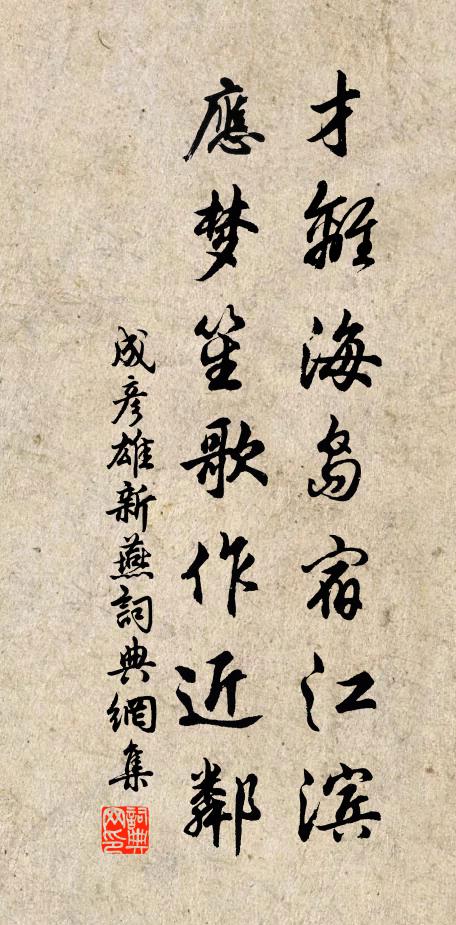 才離海島宿江滨
應梦笙歌作近鄰
成彦雄新燕詞典網集
詞典网印